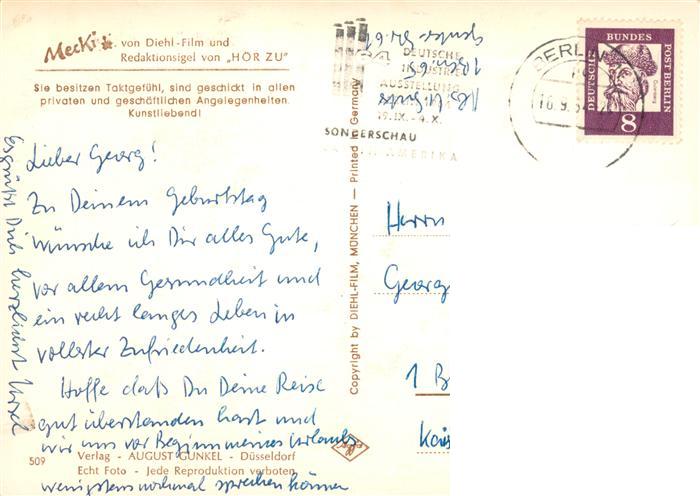 Mecki
von Diehl-Film und
Redaktionsigel von „HÖR ZU"
Sie besitzen Taktgefühl, sind geschickt in allen
privaten und geschäftlichen Angelegenheiten.
Kunstliebend!
Lieber Georg!
Zu Deinem Geburtstag
wünsche ich Dir alles Gute,
vor allem Gesundheit und
ein recht langes Leben in
vollster Zufriedenheit.
Hoffe daß Du Deine Reise
gut überstanden hast und
wir uns vor Beginn meines Urlaubs
wenigstens nochmal sprechen können
Es grüßt Dich herzlichst Ursel
509
Verlag - AUGUST GUNKEL - Düsseldorf
Echt Foto - Jede Reproduktion verboten
Copyright by DIEHL-FILM, MÜNCHEN — Printed in Germany
Agfa
DEUTSCHE
INDUSTRIE
AUSSTELLUNG
19.IX.-4.X.
SONDERSCHAU
AMERIKA
BERLIN
16.9.
DEUTSCHE BUNDES POST BERLIN
8
Herrn
Georg
1 B
Kais